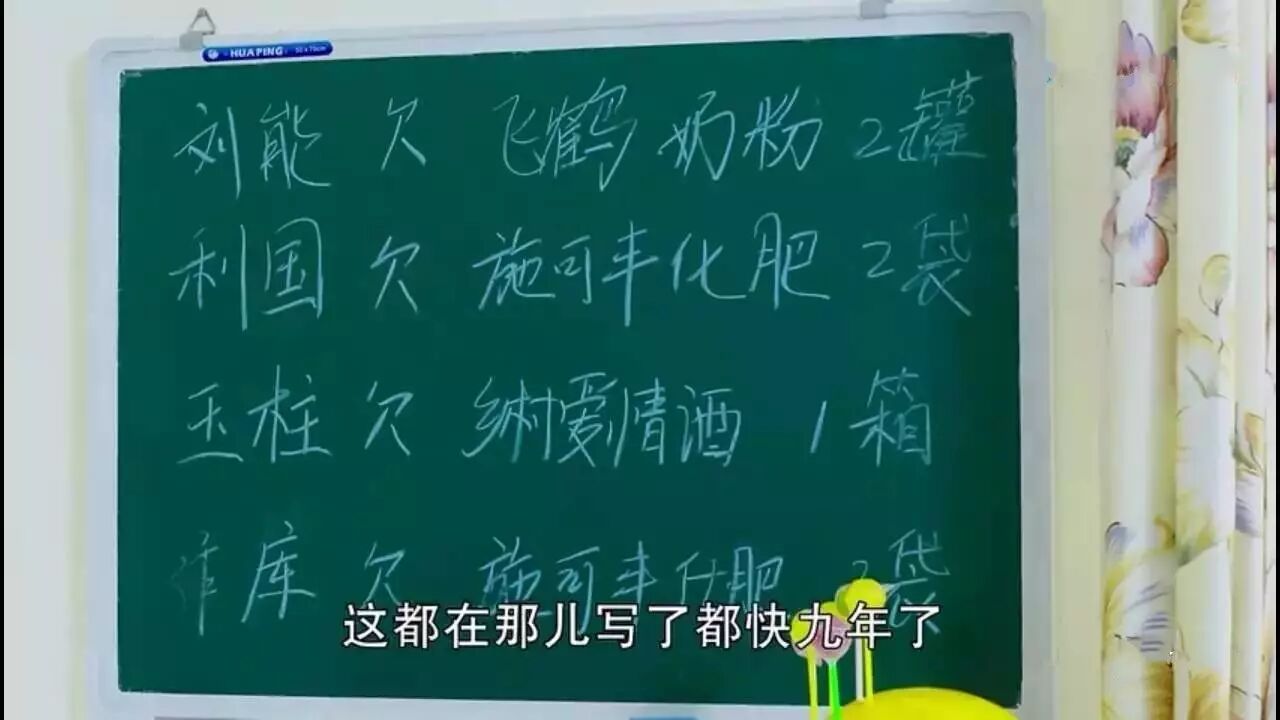 HUA PING 50x70cm
刘能 欠 飞鹤 奶粉 2罐
利国 欠 施可丰化肥 2袋
玉柱 欠 乡村爱情酒 1箱
库 欠 施可丰化肥 2袋
这都在那儿写了都快九年了